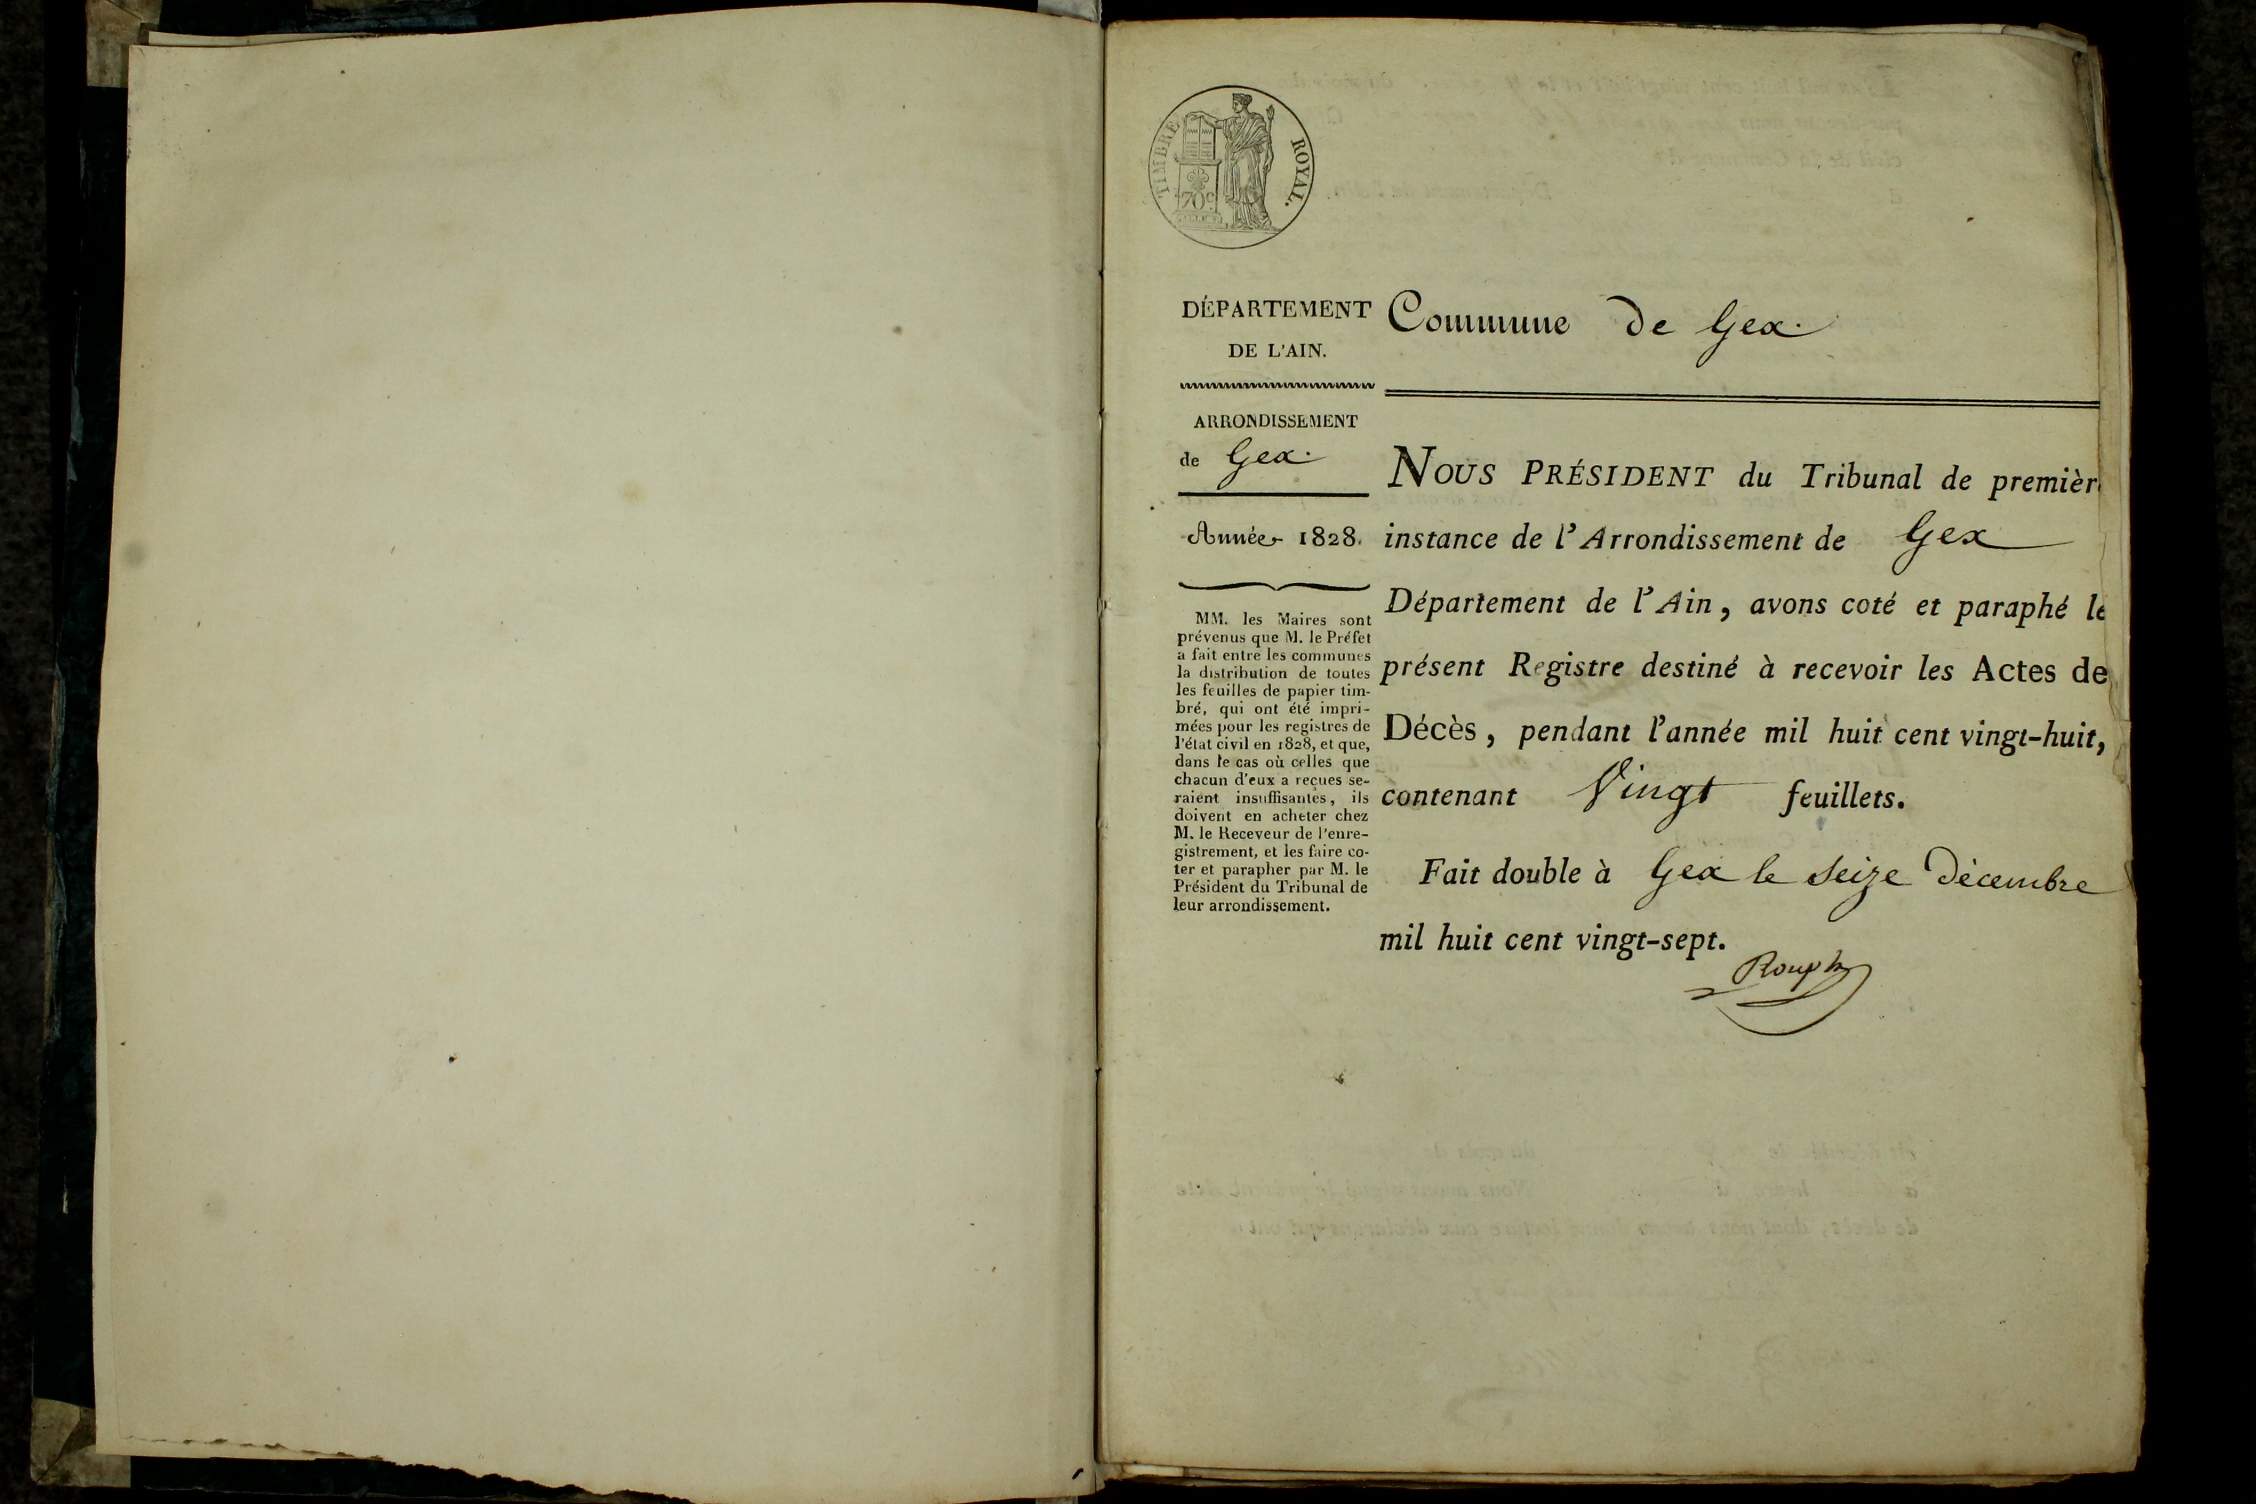 TIMBRE ROYAL.
70c
DÉPARTEMENT
DE L'AIN.
ARRONDISSEMENT
de Gex.
Année 1828.
MM. les Maires sont
prévenus que M. le Préfet
a fait entre les communes
la distribution de toutes
les feuilles de papier tim-
bré, qui ont été impri-
mées pour les registres de
l'état civil en 1828, et que,
dans le cas où celles que
chacun d'eux a reçues se-
raient insuffisantes, ils
doivent en acheter chez
M. le Receveur de l'enre-
gistrement, et les faire co-
ter et parapher par M. le
Président du Tribunal de
leur arrondissement.
Commune de Gex.
NOUS PRÉSIDENT du Tribunal de premièr
instance de l'Arrondissement de Gex
Département de l'Ain, avons coté et paraphé le
présent Registre destiné à recevoir les Actes de
Décès, pendant l'année mil huit cent vingt-huit,
contenant Vingt feuillets.
Fait double à Gex le seize Décembre
mil huit cent vingt-sept.
Rouph